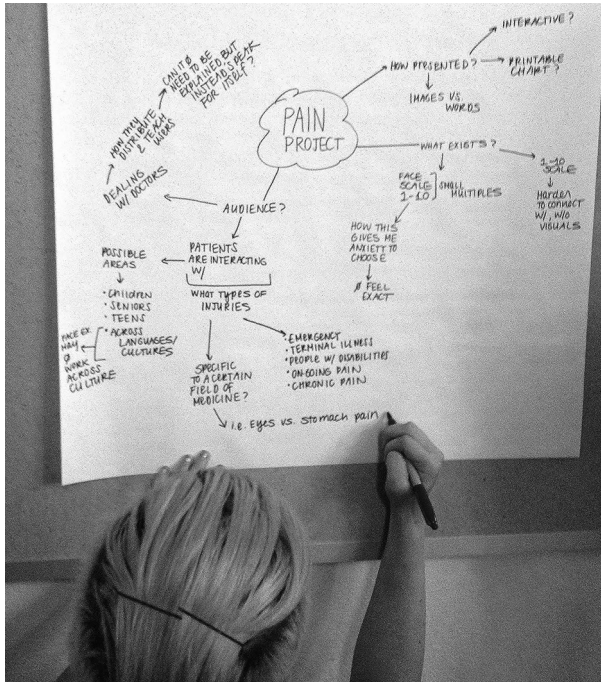 PAIN
PROJECT
HOW PRESENTED?
INTERACTIVE?
PRINTABLE
CHART?
IMAGES VS.
WORDS
WHAT EXISTS?
FACE
SCALE
1-10
SMALL
MULTIPLES
HOW THIS
GIVES ME
ANXIETY TO
CHOOSE
Ø FEEL
EXACT
1-10
SCALE
Harder
TO CONNECT
W/, W/O
VISUALS
AUDIENCE?
DEALING
W/ DOCTORS
HOW THEY
DISTRIBUTE
& TEACH
USERS
CAN IT Ø
NEED TO BE
EXPLAINED, BUT
INSTEAD SPEAK
FOR ITSELF?
PATIENTS
ARE INTERACTING
W/
POSSIBLE
AREAS
• Children
• SENIORS
• TEENS
• ACROSS
LANGUAGES/
CULTURES
FACE EX.
MAY
Ø
WORK
ACROSS
CULTURE
WHAT TYPES OF
INJURIES
• EMERGENCY
• TERMINAL ILLNESS
• PEOPLE W/ DISABILITIES
• ON-GOING PAIN
• CHRONIC PAIN
SPECIFIC
TO A CERTAIN
FIELD OF
MEDICINE?
i.e. Eyes vs. Stomach pain